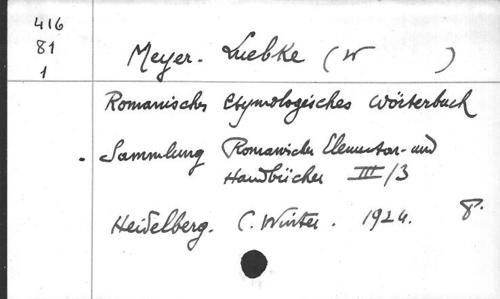 416
81
1
Meyer-Luebke (W )
Romanisches Etymologisches Wörterbuch
Sammlung Romanischer Elementar- und
Handbücher III/3
Heidelberg. C. Winter. 1924. 8°.